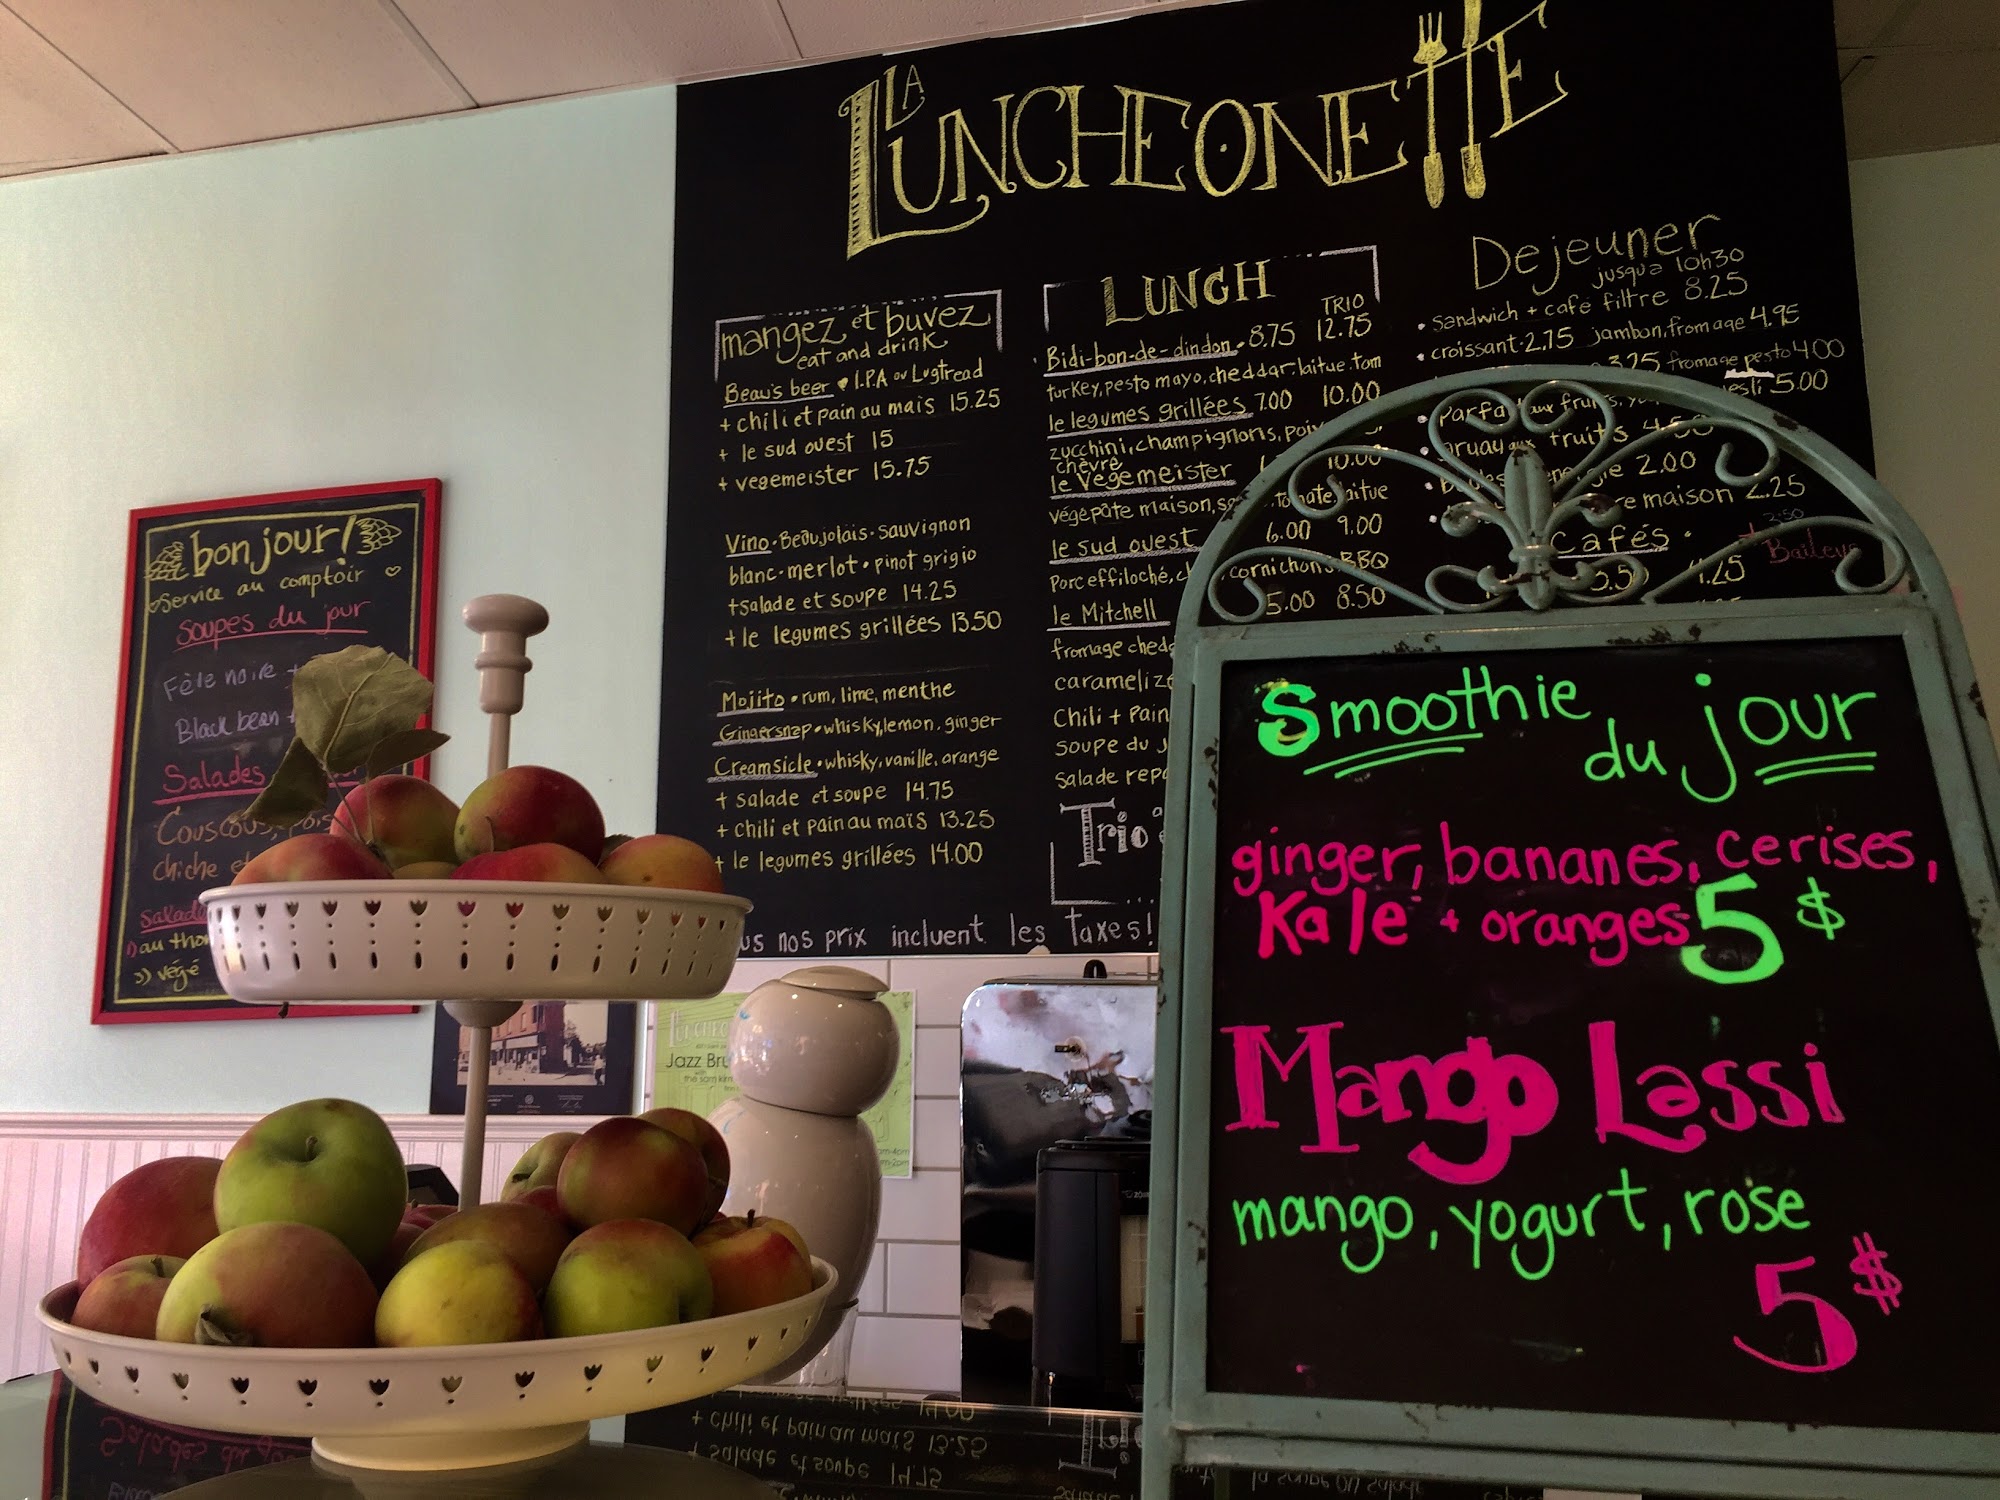 LA
LUNCHEONETTE
mangez et buvez
eat and drink
Beau's beer I.P.A ou Lugtread
+ chili et pain au maïs 15.25
+ le sud ouest 15
+ vegemeister 15.75
Vino • Beaujolais • sauvignon
blanc • merlot • pinot grigio
+ salade et soupe 14.25
+ le legumes grillées 13.50
Mojito • rum, lime, menthe
Gingersnap • whisky, lemon, ginger
Creamsicle • whisky, vanille, orange
+ salade et soupe 14.75
+ chili et pain au maïs 13.25
+ le legumes grillées 14.00
nos prix incluent les taxes!
LUNCH
TRIO
Bidi-bon-de-dindon • 8.75 12.75
turkey, pesto mayo, cheddar, laitue, tom
le legumes grillées 7.00 10.00
zucchini, champignons,
chèvre
le vegemeister 10.00
végepâte maison, laitue
le sud ouest 6.00 9.00
Porc effiloché, cornichons, BBQ
le Mitchell 5.00 8.50
fromage
Chili + Pain
soupe du
salade
Trio
Dejeuner
jusqua 10h30
• sandwich + café filtre 8.25
• croissant • 2.75 jambon, fromage 4.95
3.25 fromage pesto 4.00
5.00
fruits 4.50
2.00
maison 2.25
Cafés
Baileys
4.25
bonjour!
Service au comptoir
Soupes du jour
Fève noire +
Black bean +
Salades
Couscous, pois
chiche et
Salade
au thon
végé
Jazz
Smoothie
du jour
ginger, bananes, cerises,
Kale + oranges 5$
Mango Lassi
mango, yogurt, rose
5$